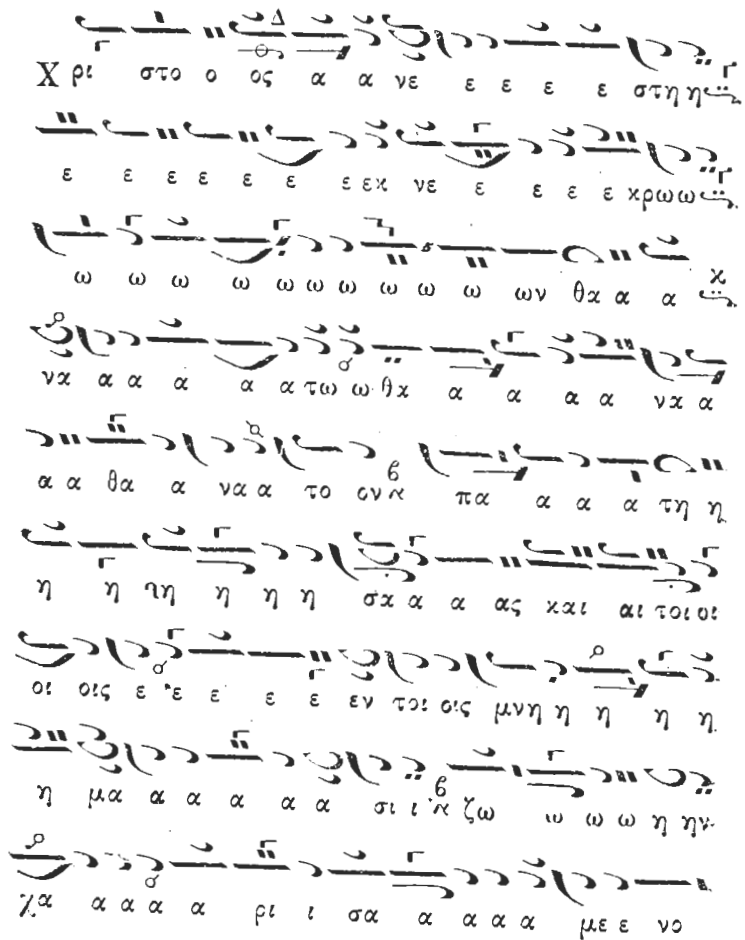 Χ ρι στο ο ος α α νε ε ε ε ε στη η
ε ε ε ε ε ε ε εκ νε ε ε ε ε κρω ω ω
ω ω ω ω ω ω ω ω ω ω ων θα α α
να α α α α α τω ω θα α α α α να α
α α θα α να α α το ον πα α α α τη η
η η τη η η η σα α α ας και αι τοι οι
οι οις ε ε ε ε ε εν τοι οις μνη η η η η
η μα α α α α α σι ι ζω ω ω ω η ην
χα α α α α ρι ι σα α α α α με ε νο